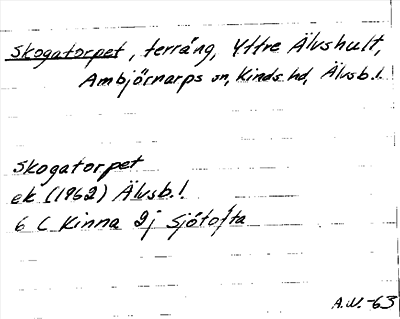 Skogatorpet, terräng, Yttre Älvshult,
Ambjörnarps sn, Kinds hd, Älvsb.l.
Skogatorpet
ek (1962) Älvsb.l.
6 C Kinna 2j Sjötofta
A.N.-63